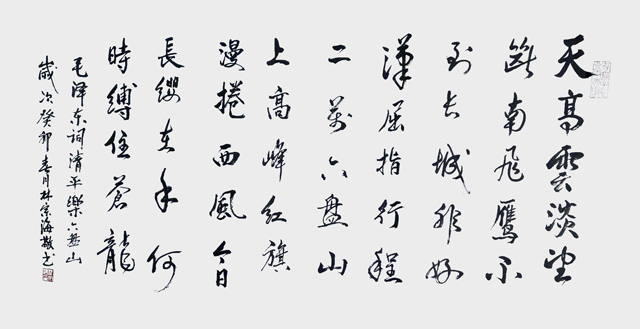 天高雲淡望
斷南飛鴈不
到长城非好
漢屈指行程
二萬六盘山
上高峰紅旗
漫捲西風今日
長纓在手何
時縛住蒼龍
毛泽东詞清平樂六盘山
歲次癸卯春月林宗海敬书